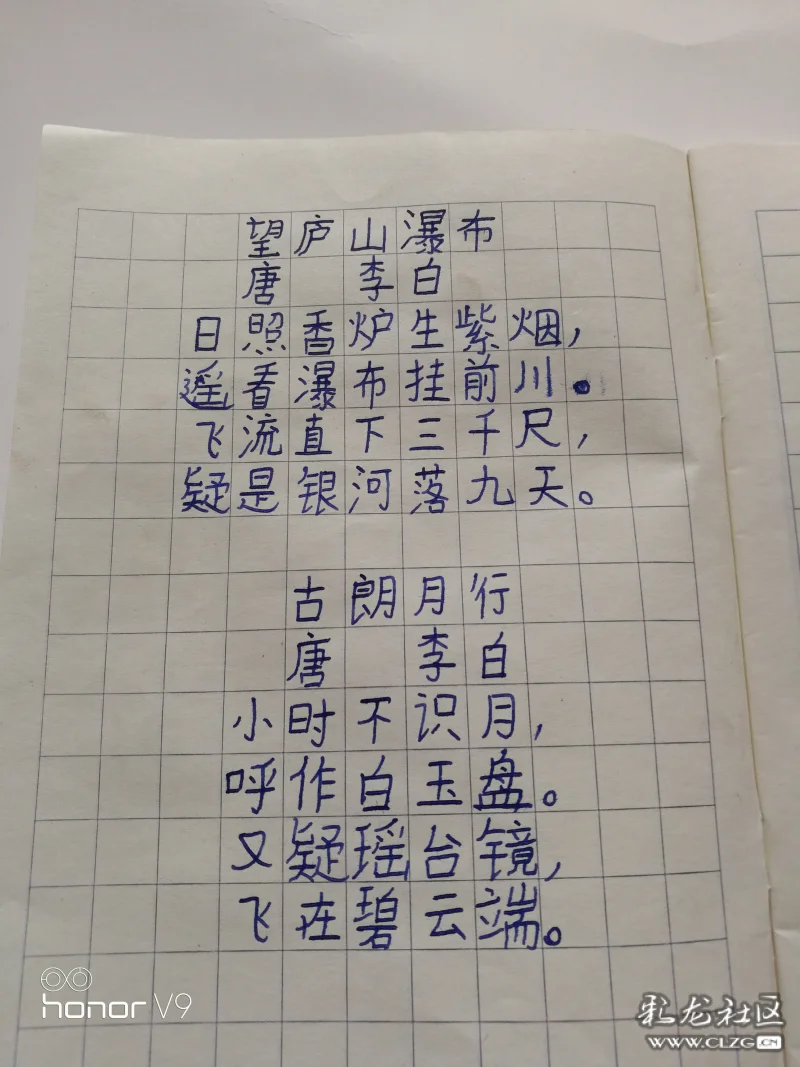 望庐山瀑布
唐 李白
日照香炉生紫烟，
遥看瀑布挂前川。
飞流直下三千尺，
疑是银河落九天。
古朗月行
唐 李白
小时不识月，
呼作白玉盘。
又疑瑶台镜，
飞在碧云端。
honor V9
彩龙社区
WWW.CLZG.CN